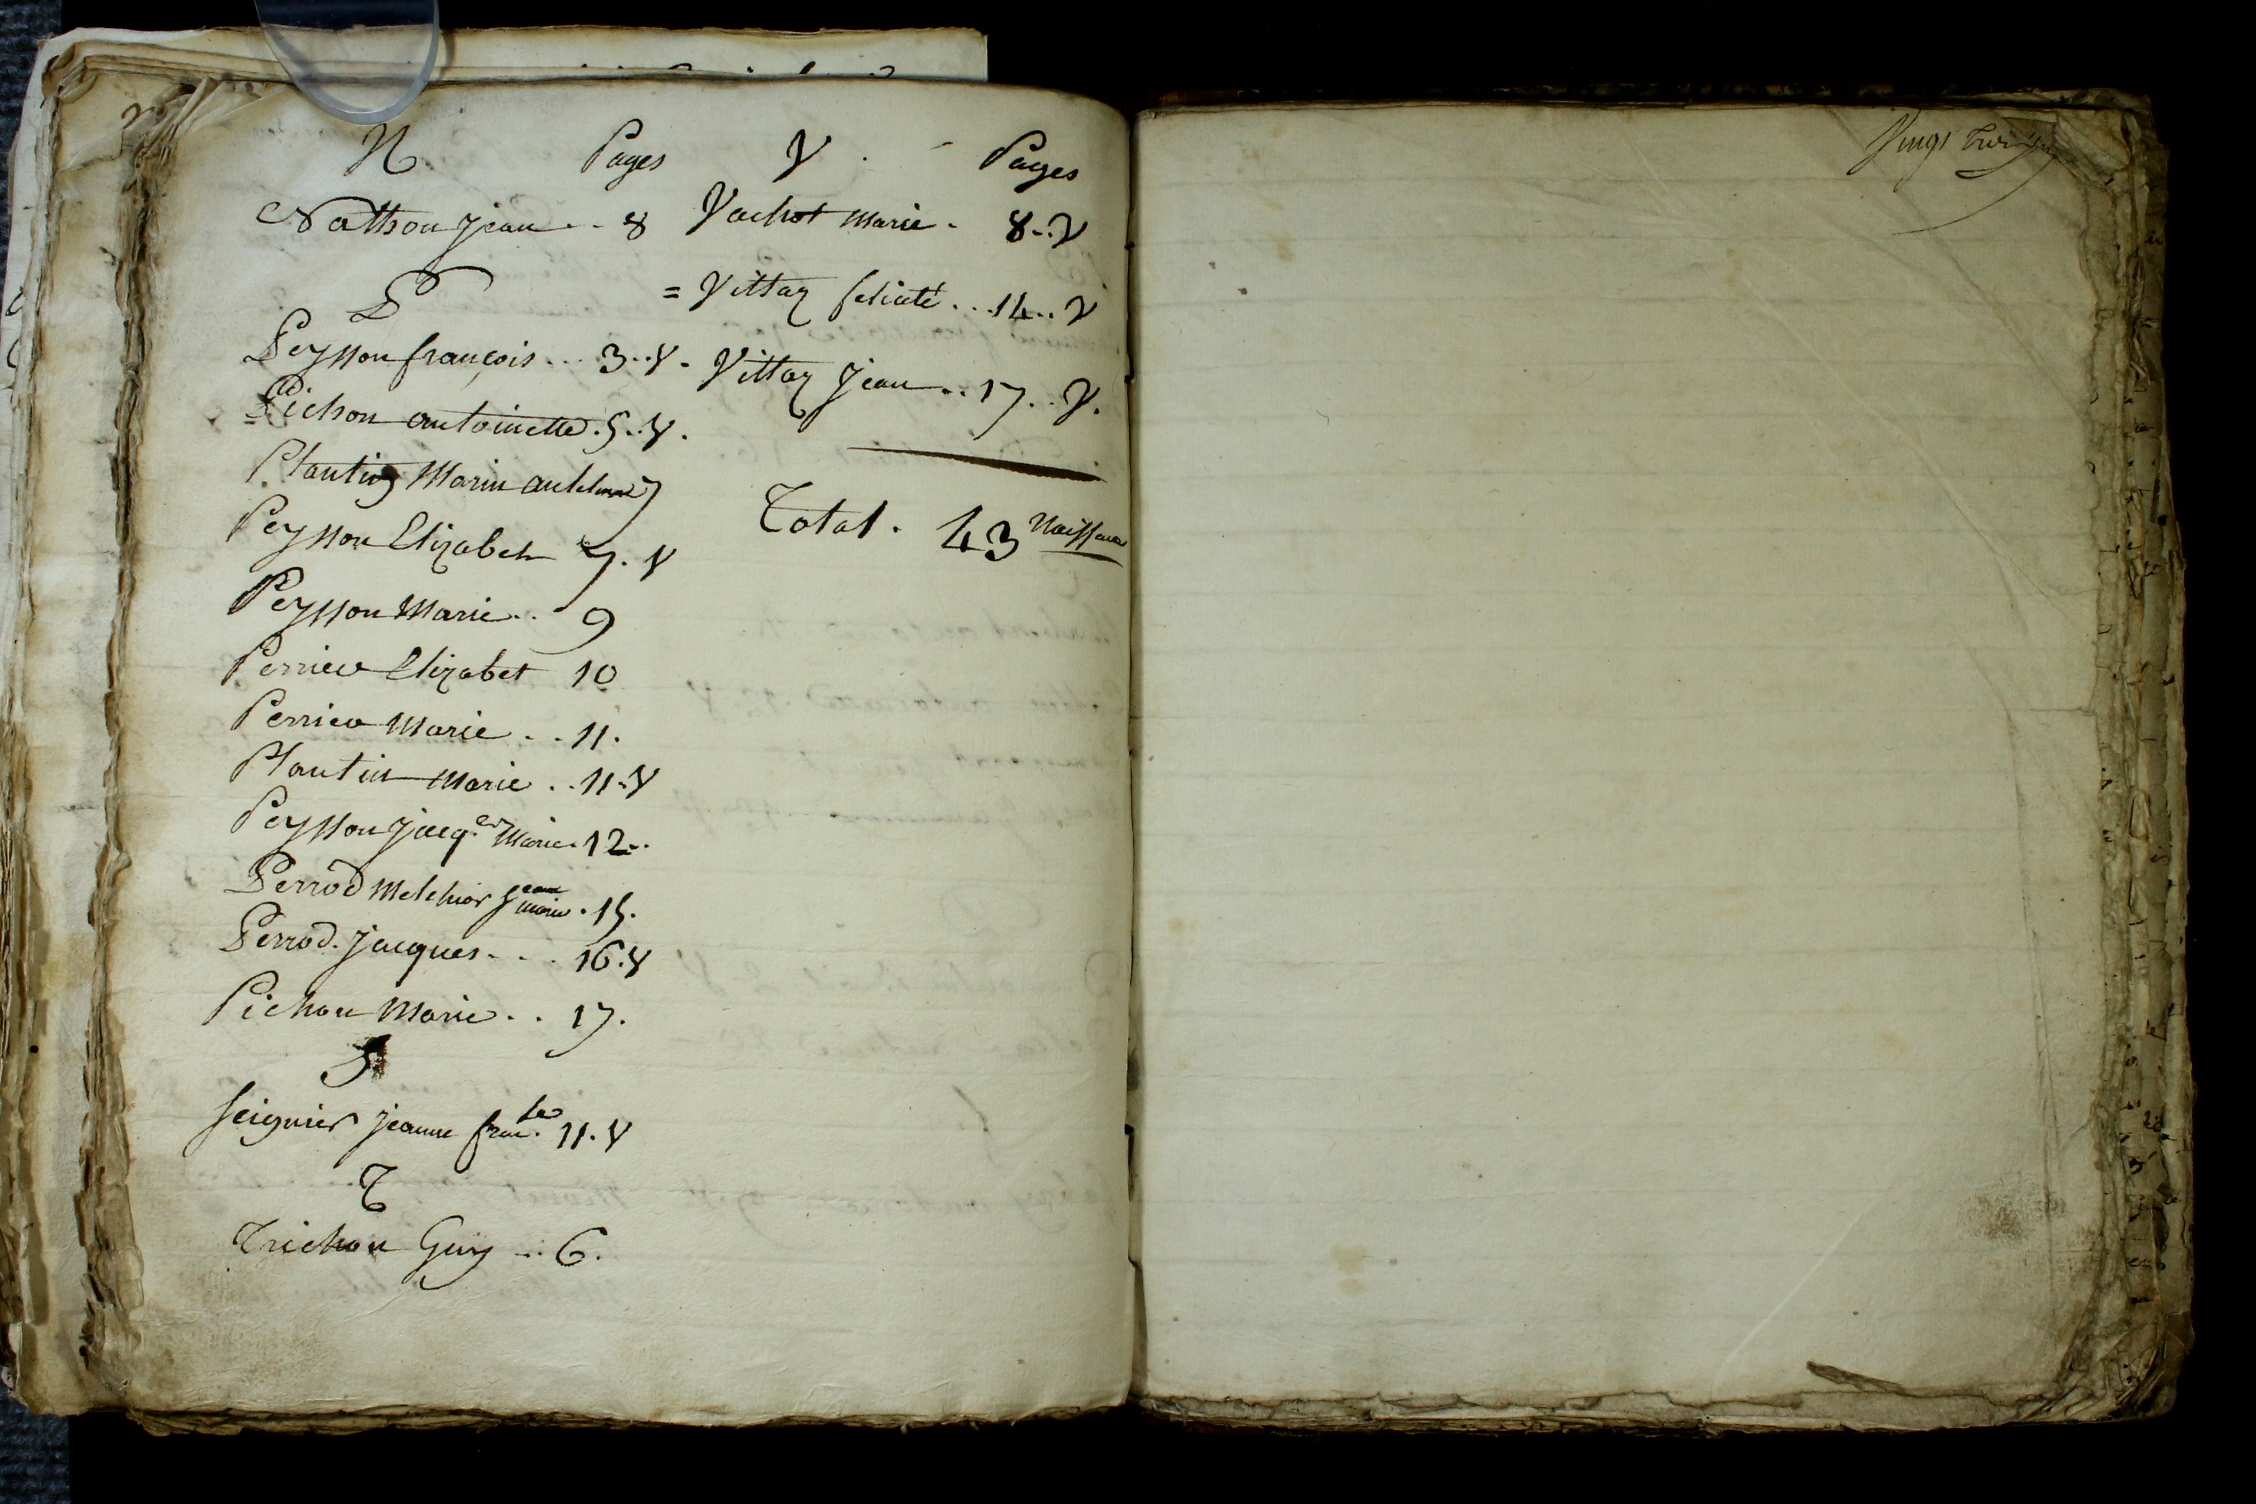 N Pages
Nathon Jean .. 8
P
Peysson françois ... 3..V.
Pichon antoinette . 5..V.
Plantin Marin 7
Peysson Elizabeth 7. V
Peysson Marie .. 9
Perrier Elizabet 10
Perrier Marie .. 11.
Plantin Marie .. 11.V
Peysson Jacq. Marie . 12..
Perrod Melchior Jean marie . 15.
Perrod. Jacques ... 16.V
Pichon Marie .. 17.
S
Seignier jeanne fran.se 11.V
T
Trichon Guy ... 6.
V. Pages
Vachot Marie . 8..V
= Vittoz felicité ... 14.. V
Vittoz Jean .. 17.. V.
Total . 43 Naissances
Vingt